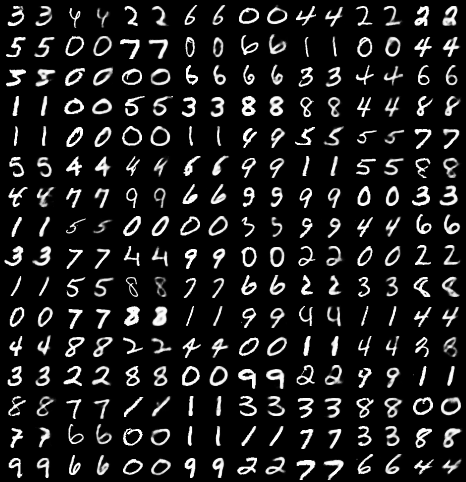 3 3 4 4 2 2 6 6 0 0 4 4 2 2 2 2
5 5 0 0 7 7 0 0 6 6 1 1 0 0 4 4
3 3 0 0 0 0 6 6 6 6 3 3 4 4 6 6
1 1 0 0 5 5 3 3 8 8 8 8 4 4 8 8
1 1 0 0 0 0 1 1 9 9 5 5 5 5 7 7
5 5 4 4 4 4 6 6 9 9 1 1 5 5 8 8
4 4 7 7 9 9 6 6 9 9 9 9 0 0 3 3
1 1 5 5 0 0 0 0 3 5 9 9 4 4 6 6
3 3 7 7 4 4 9 9 0 0 2 2 0 0 2 2
1 1 5 5 8 8 7 7 6 6 2 2 3 3 8 8
0 0 7 7 8 8 1 1 9 9 4 4 1 1 4 4
4 4 8 8 2 2 4 4 0 0 1 1 4 4 8
3 3 2 2 8 8 0 0 9 9 2 2 9 9 1 1
8 8 7 7 1 1 1 1 3 3 3 3 8 8 0 0
7 7 6 6 0 0 1 1 1 1 7 7 3 3 8 8
9 9 6 6 0 0 9 9 2 2 7 7 6 6 4 4